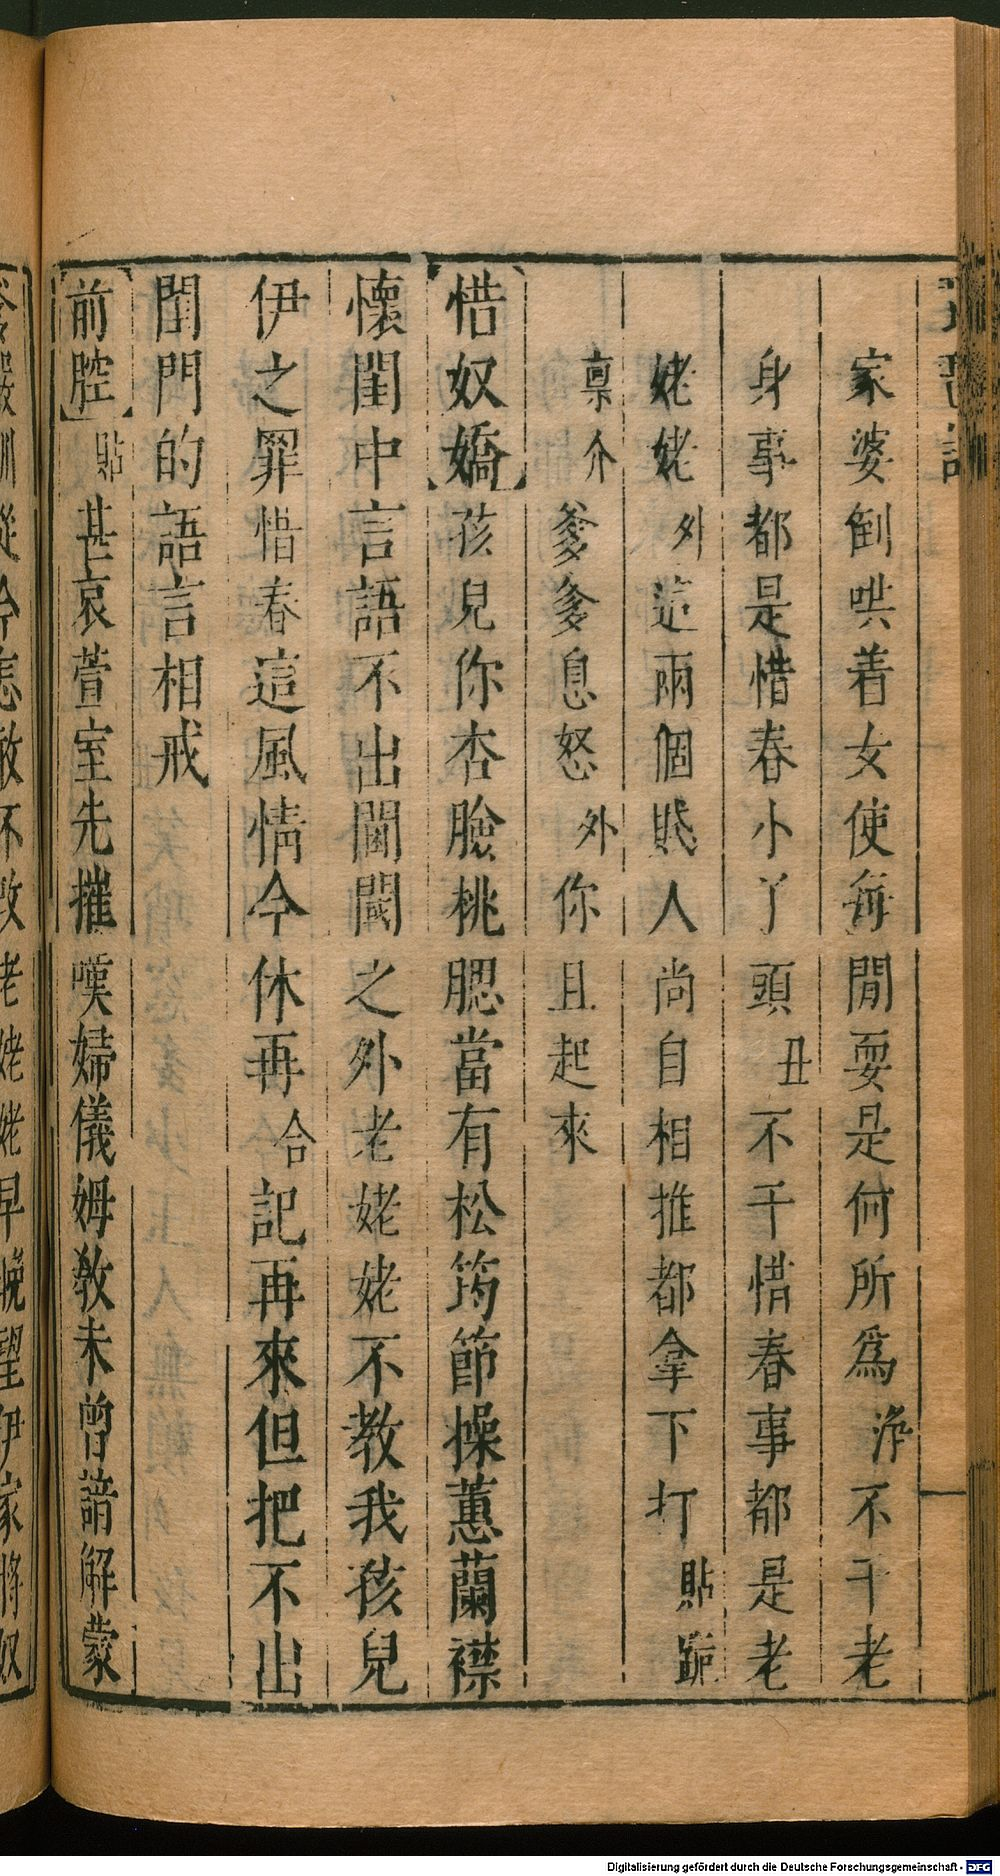 家婆倒哄着女使每閒耍是何所爲淨不干老
身事都是惜春小丫頭丑不干惜春事都是老
姥姥外這兩個賤人尚自相推都拿下打貼跪
稟介爹爹息怒外你且起來
惜奴嬌孩兒你杏臉桃腮當有松筠節操蕙蘭襟
懷閨中言語不出閫閾之外老姥姥不教我孩兒
伊之罪惜春這風情今休再合記再來但把不出
閨門的語言相戒
前腔貼甚哀萱室先摧嘆婦儀姆教未曾諳解蒙
嚴訓從今怎敢不改老姥姥早晚望伊家將奴
Digitalisierung gefördert durch die Deutsche Forschungsgemeinschaft - DFG